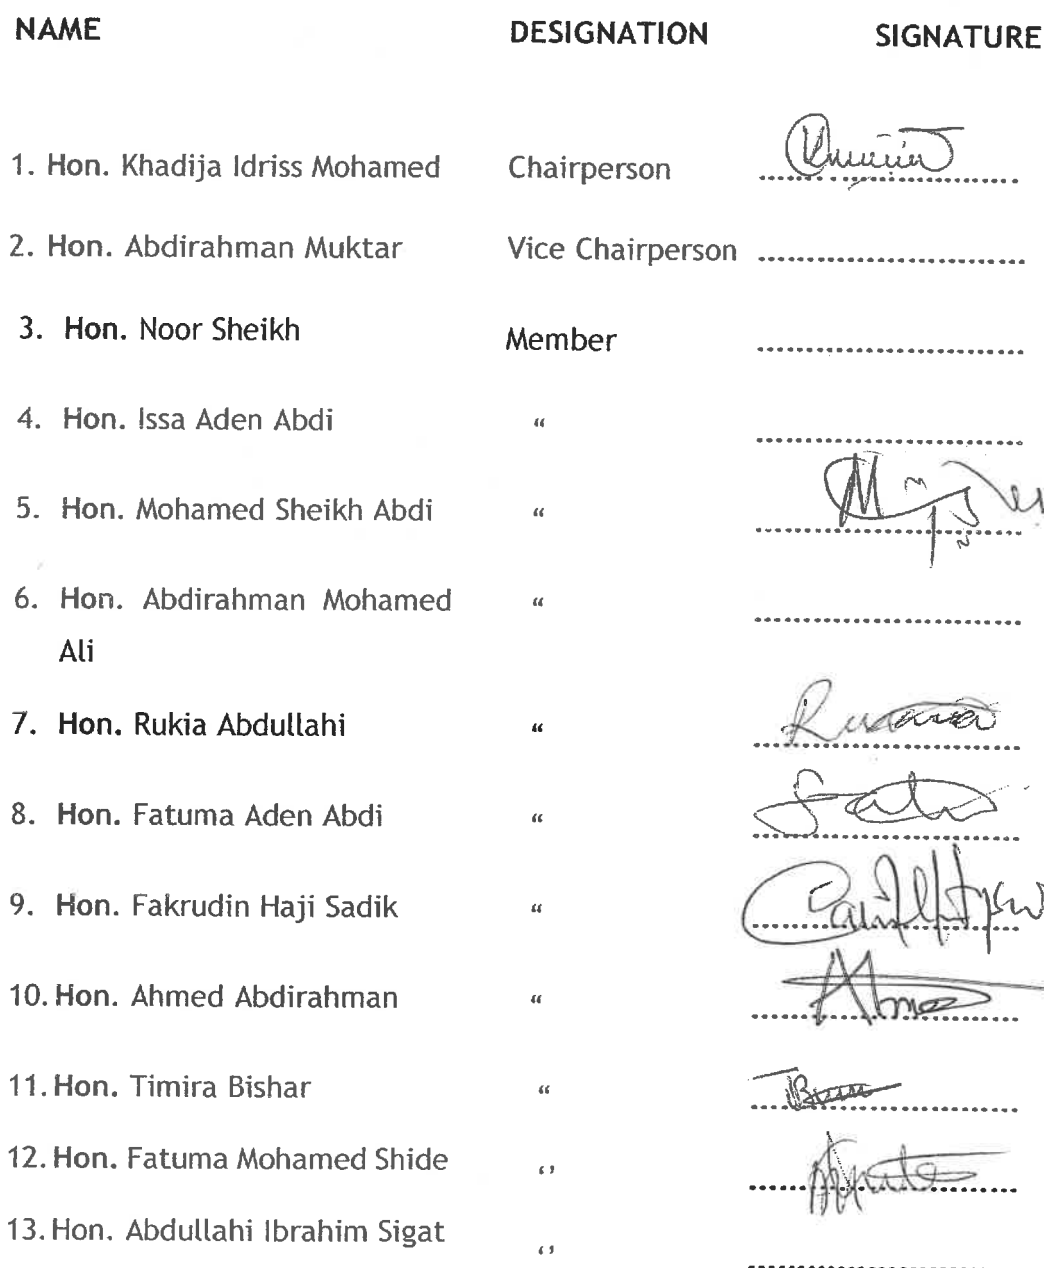 NAME DESIGNATION SIGNATURE
1. Hon. Khadija Idriss Mohamed Chairperson
2. Hon. Abdirahman Muktar Vice Chairperson
3. Hon. Noor Sheikh Member
4. Hon. Issa Aden Abdi “
5. Hon. Mohamed Sheikh Abdi “
6. Hon. Abdirahman Mohamed “
Ali
7. Hon. Rukia Abdullahi “
8. Hon. Fatuma Aden Abdi “
9. Hon. Fakrudin Haji Sadik “
10. Hon. Ahmed Abdirahman “
11. Hon. Timira Bishar “
12. Hon. Fatuma Mohamed Shide ‘’
13. Hon. Abdullahi Ibrahim Sigat ‘’